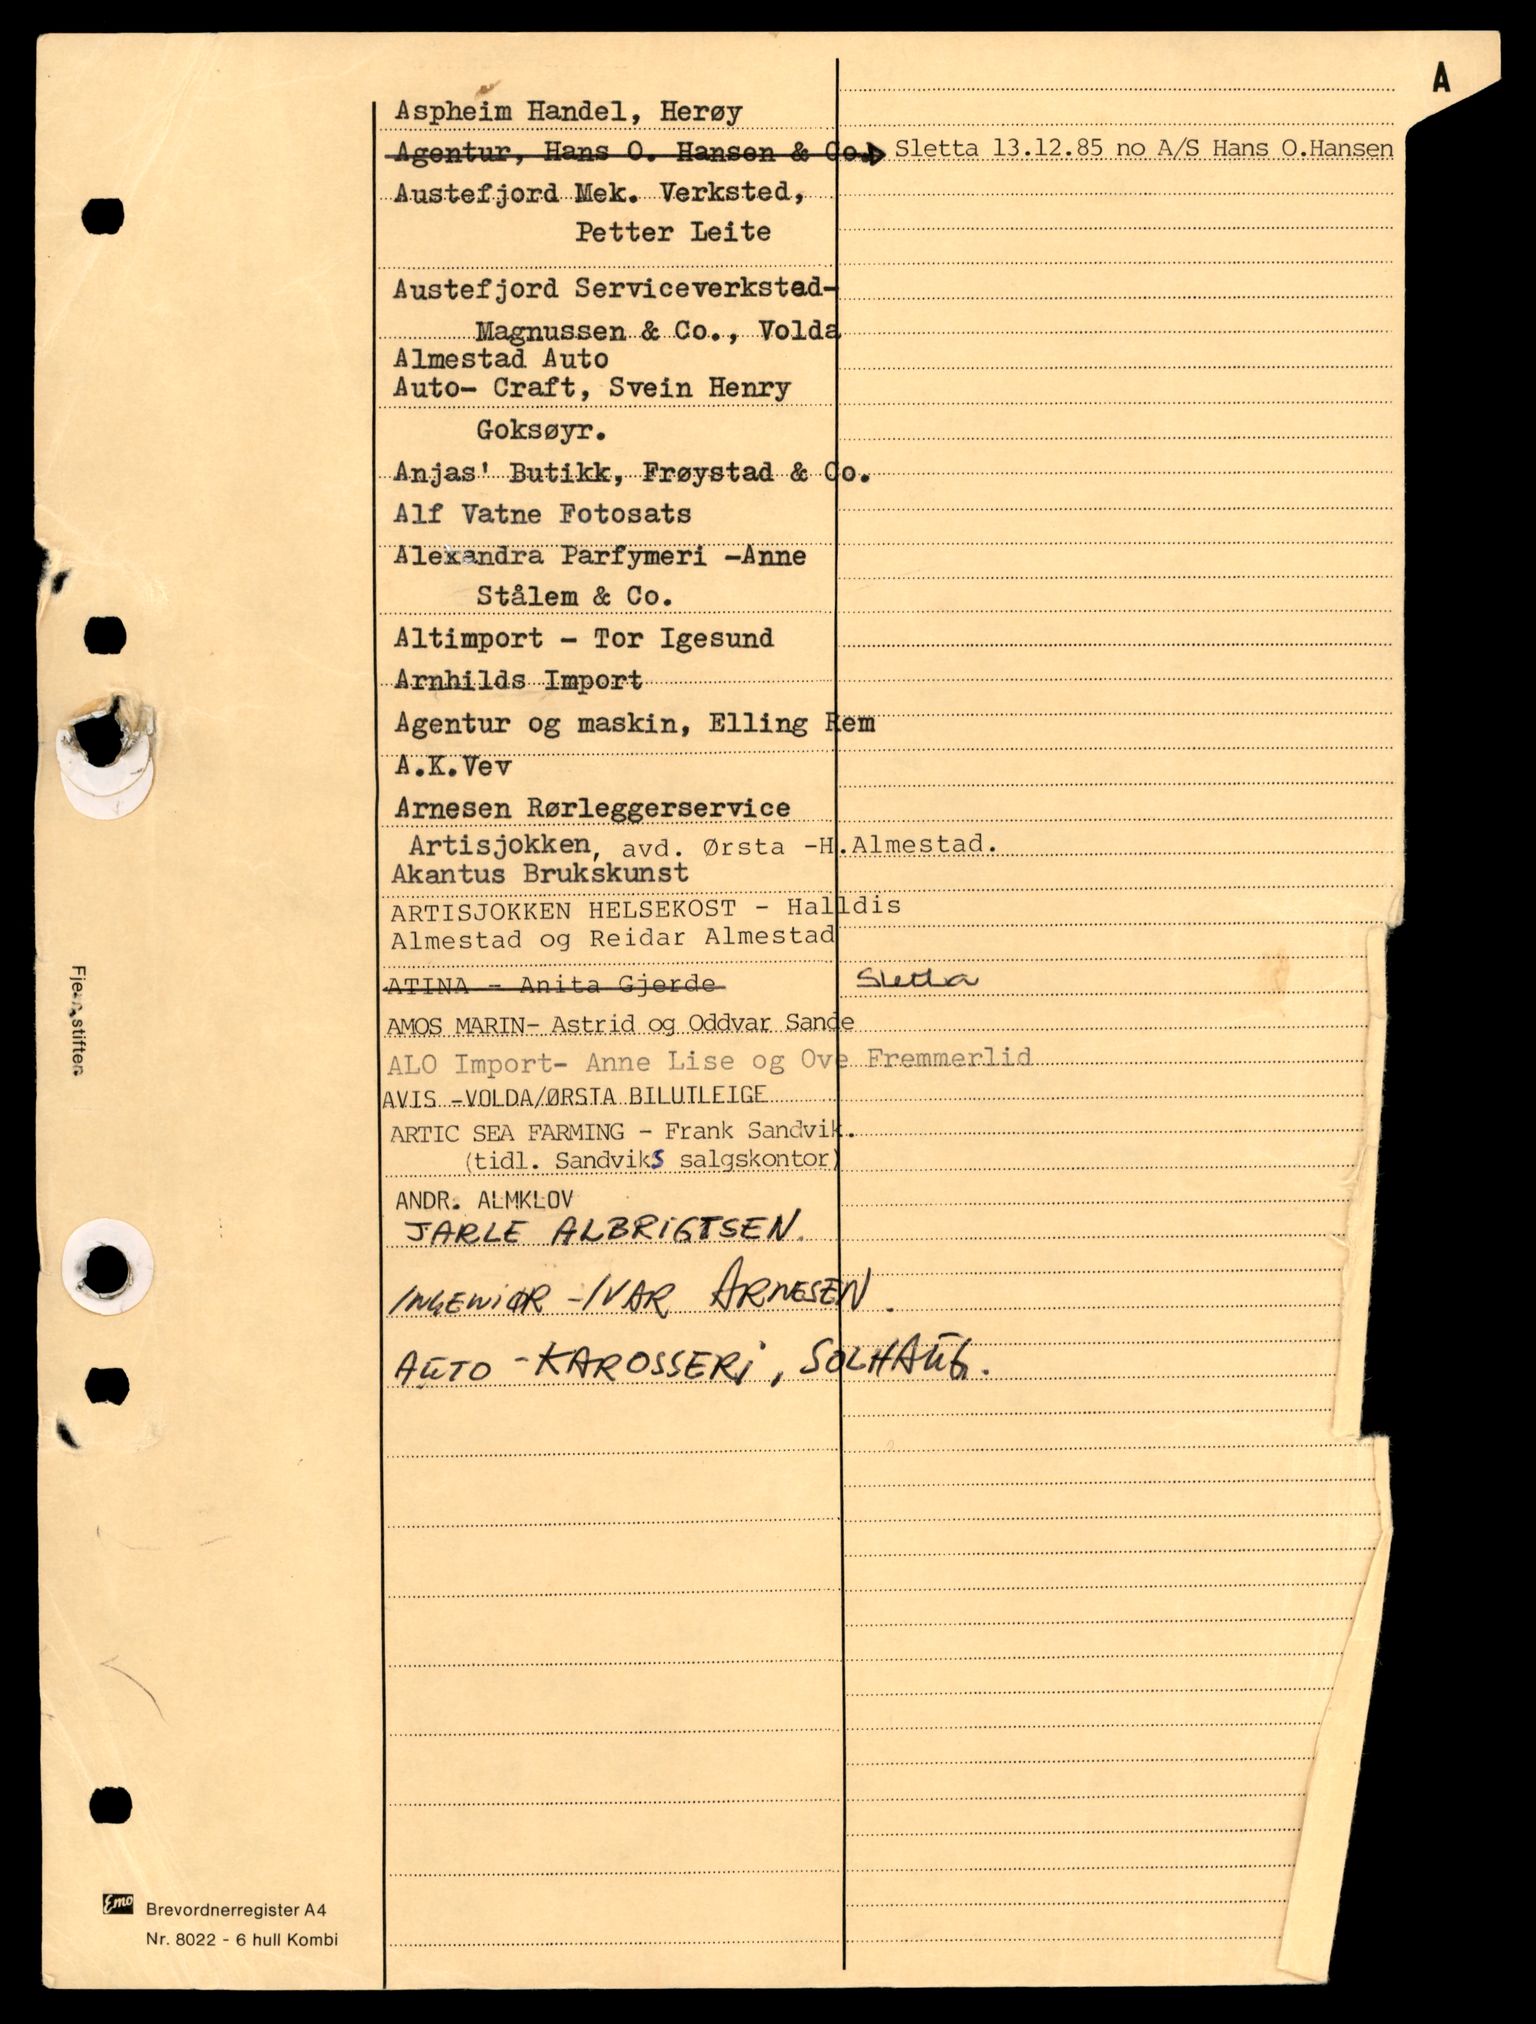 A
Aspheim Handel, Herøy
Agentur, Hans O. Hansen & Co. Sletta 13.12.85 no A/S Hans O.Hansen
Austefjord Mek. Verksted,
Petter Leite
Austefjord Serviceverksted-
Magnussen & Co., Volda
Almestad Auto
Auto- Craft, Svein Henry
Goksøyr.
Anjas' Butikk, Frøystad & Co.
Alf Vatne Fotosats
Alexandra Parfymeri -Anne
Stålem & Co.
Altimport - Tor Igesund
Arnhilds Import
Agentur og maskin, Elling Rem
A.K.Vev
Arnesen Rørleggerservice
Artisjokken, avd. Ørsta -H.Almestad.
Akantus Brukskunst
ARTISJOKKEN HELSEKOST - Halldis
Almestad og Reidar Almestad
ATINA - Anita Gjerde Sletta
AMOS MARIN- Astrid og Oddvar Sande
ALO Import- Anne Lise og Ove Fremmerlid
AVIS -VOLDA/ØRSTA BILUTLEIGE
ARTIC SEA FARMING - Frank Sandvik.
(tidl. Sandviks salgskontor)
ANDR. ALMKLOV
JARLE ALBRIGTSEN.
INGENIØR - IVAR ARNESEN.
AUTO - KAROSSERI, SOLHAUG.
Fjern stiften
Emo Brevordnerregister A4
Nr. 8022 - 6 hull Kombi